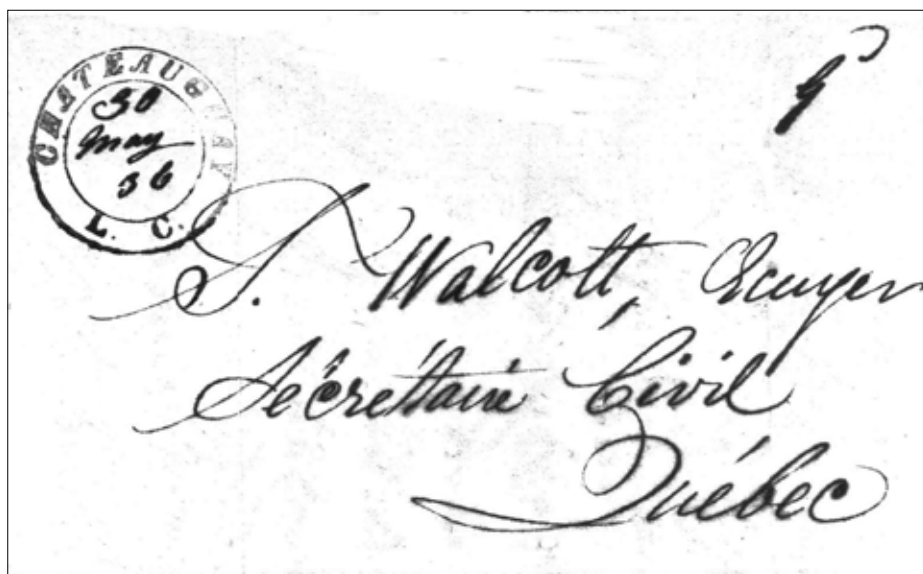 CHATEAUGUAY
30
may
36
L. C.
9
S. Walcott, Ecuyer
Sécrétaire Civil
Québec